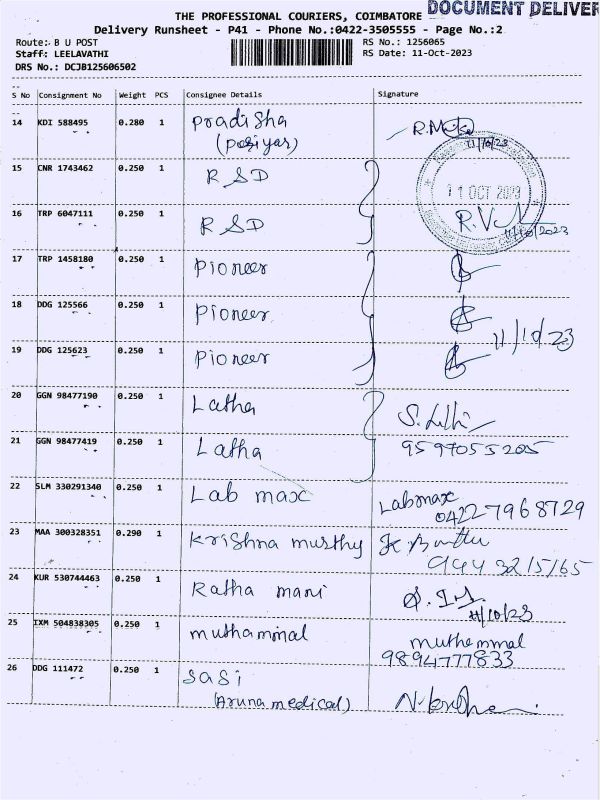 THE PROFESSIONAL COURIERS, COIMBATORE DOCUMENT DELIVER
Delivery Runsheet - P41 - Phone No.:0422-3505555 - Page No.:2
Route: B U POST RS No.: 1256065
Staff: LEELAVATHI RS Date: 11-Oct-2023
DRS No.: DCJB125606502
S No Consignment No Weight PCS Consignee Details Signature
14 KDI 588495 0.280 1 Pradisha
(posiyar) 11/10/23
15 CNR 1743462 0.250 1 R SD
11 OCT 2023
16 TRP 6047111 0.250 1 R SD 11/10/2023
17 TRP 1458180 0.250 1 Pioneer
18 DDG 125566 0.250 1 Pioneer
11/10/23
19 DDG 125623 0.250 1 Pioneer
20 GGN 98477190 0.250 1 Latha
21 GGN 98477419 0.250 1 Latha 9597055205
22 SLM 330291340 0.250 1 Lab max Labmax
04227968729
23 MAA 300328351 0.290 1 Krishna murthy
9443215165
24 KUR 530744463 0.250 1 Ratha mani
11/10/23
25 IXM 504838305 0.250 1 muthammal muthammal
9894777833
26 DDG 111472 0.250 1 Sasi
(Aruna medical)